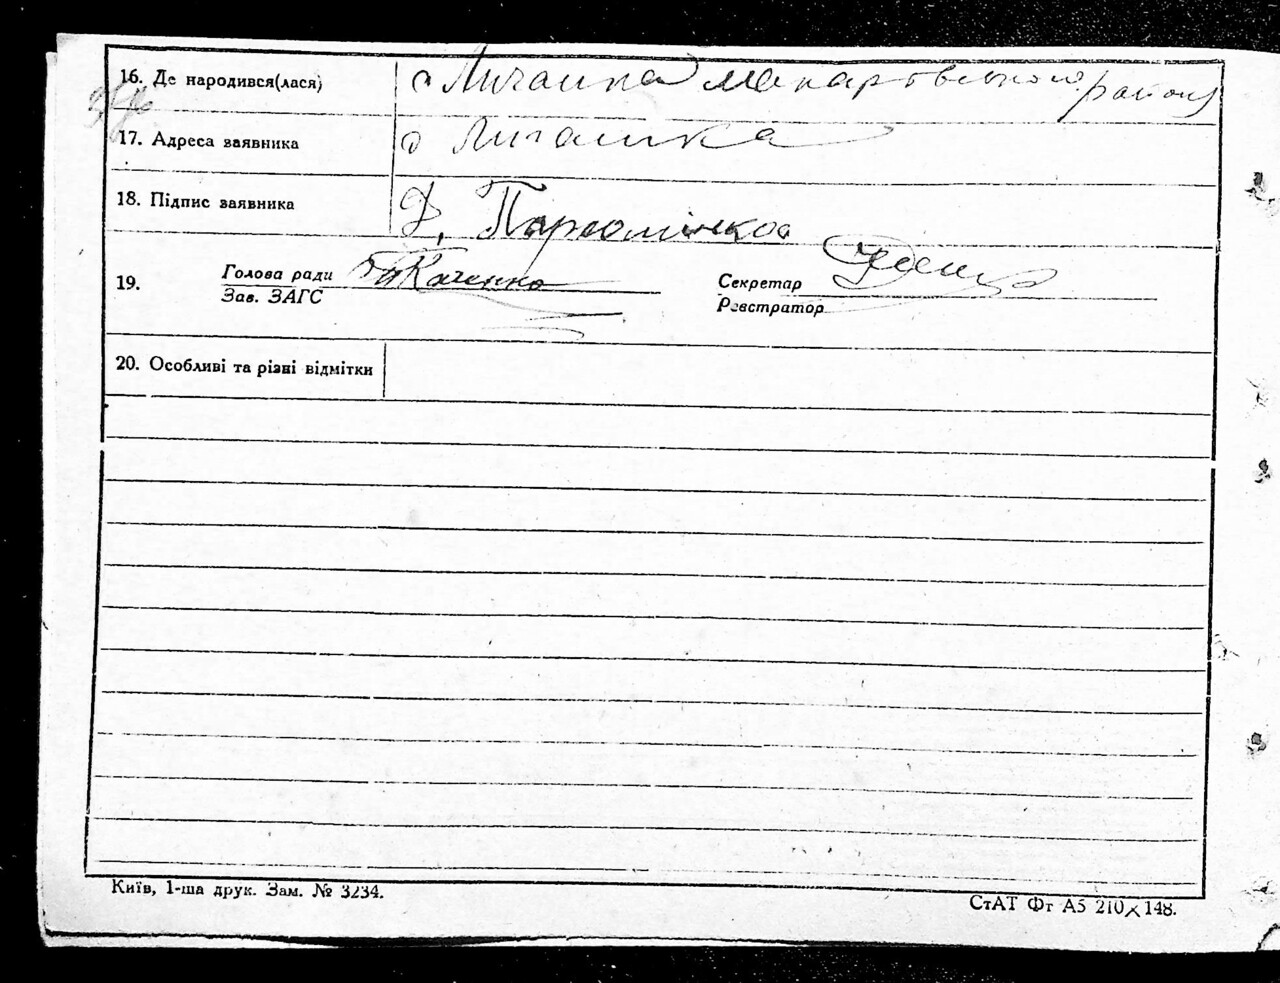 16. Де народився(лася) с Личанка Макаровського району
17. Адреса заявника с Личанка
18. Підпис заявника Д. Пархоменко
19. Голова ради Ткаченко Секретар
Зав. ЗАГС Реєстратор
20. Особливі та різні відмітки
Київ, 1-ша друк. Зам. № 3234.
СтАТ Фт А5 210×148.